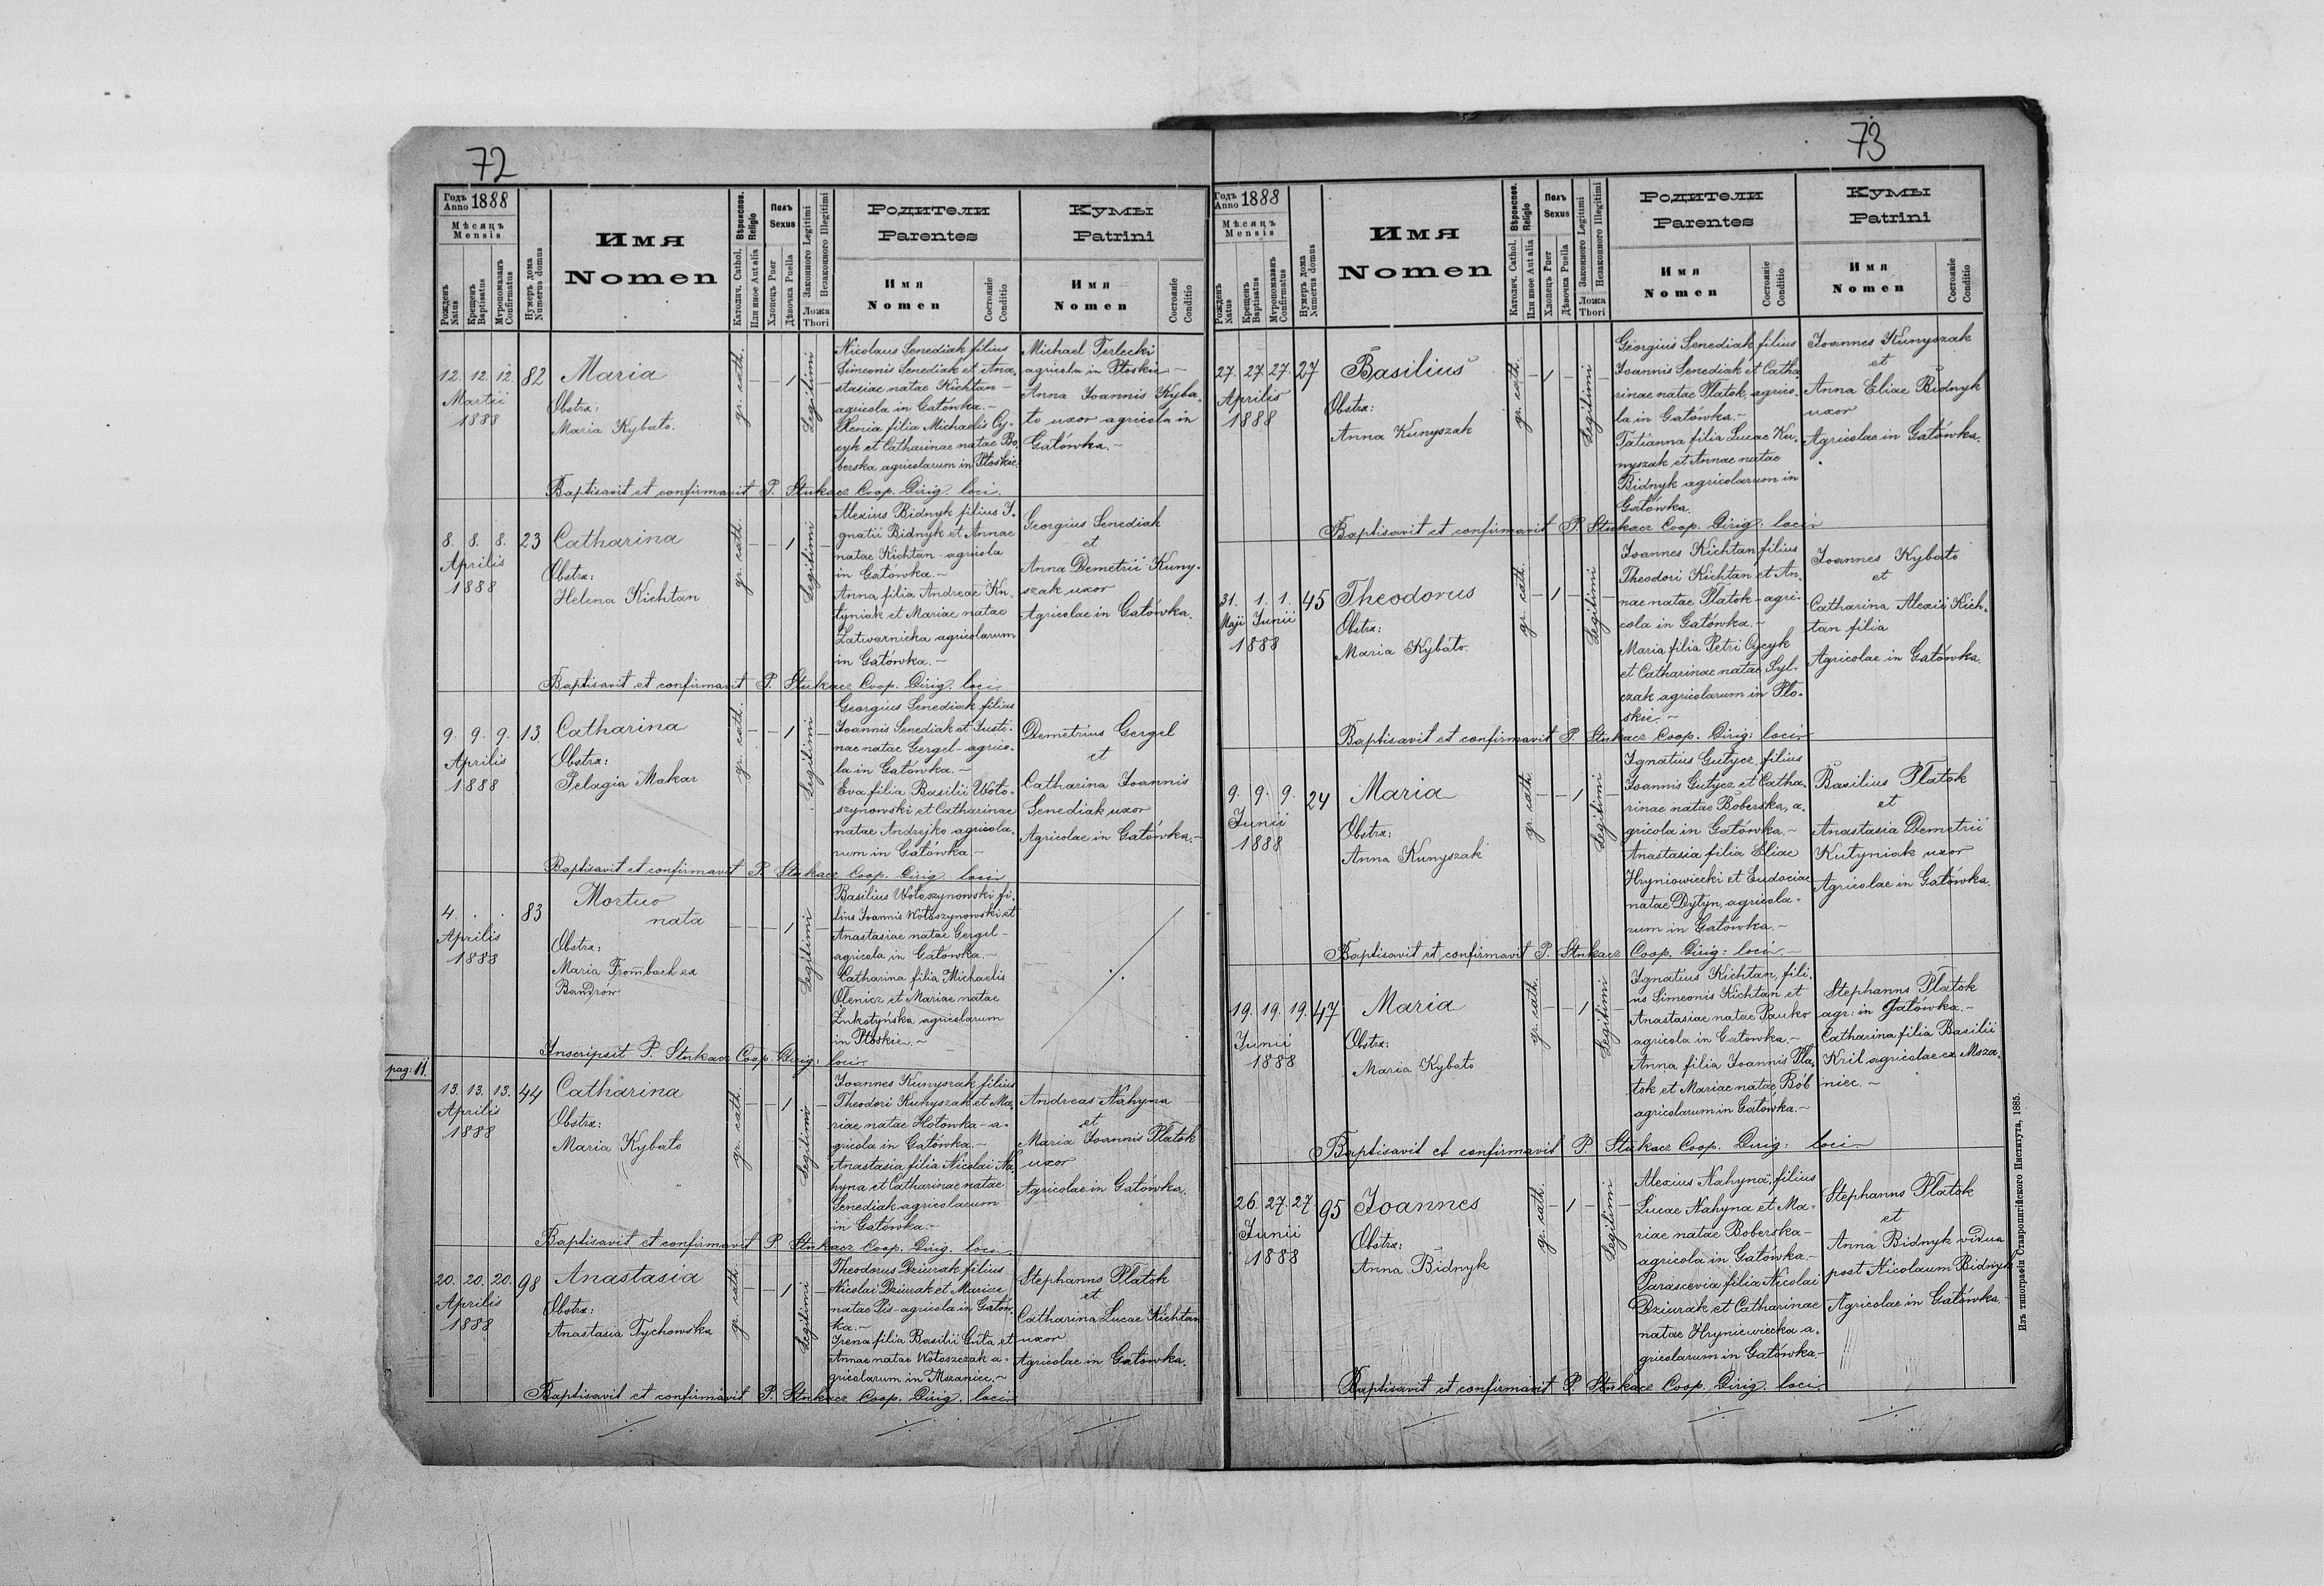 72
Годъ Anno 1888
Мѣсяцъ Mensis
Рожденъ Natus
Крещенъ Baptisatus
Муропомазанъ Confirmatus
Нумеръ дома Numerus domus
Имя Nomen
Вѣроиспов. Religio
Католич. Cathol.
Или иное Aut alia
Полъ Sexus
Хлопецъ Puer
Дѣвочка Puella
Законного Legitimi
Незаконного Illegitimi
Ложа Thori
Родители Parentes
Имя Nomen
Состояніе Conditio
Кумы Patrini
Имя Nomen
Состояніе Conditio
12. 12. 12. 82
Martii
1888
Maria
Obstx:
Maria Kybało.
gr. cath.
1
Legitimi
Nicolaus Senediak filius
Simeonis Senediak et Ana-
stasiae natae Kichtan –
agricola in Gałówka. –
Xenia filia Michaelis Cy-
cyk et Catharinae natae Bo-
berska agricolarum in Płoskie.
Michael Terlecki
agricola in Płoskie –
Anna Joannis Kyba-
ło uxor agricola in
Gałówka. –
Baptisavit et confirmavit P. Stukacz Coop. Dirig. loci.
8. 8. 8. 23
Aprilis
1888
Catharina
Obstx:
Helena Kichtan
gr. cath.
1
Legitimi
Alexius Bidnyk filius I-
gnatii Bidnyk et Annae
natae Kichtan – agricola
in Gałówka. –
Anna filia Andreae Ku-
tyniak et Mariae natae
Zatwarnicka agricolarum
in Gałówka. –
Georgius Senediak
et
Anna Demetrii Kuny-
szak uxor
Agricolae in Gałówka.
Baptisavit et confirmavit P. Stukacz Coop. Dirig. loci
9. 9. 9. 13
Aprilis
1888
Catharina
Obstx:
Pelagia Makar
gr. cath.
1
Legitimi
Georgius Senediak filius
Joannis Senediak et Justi-
nae natae Gergel – agrico-
la in Gałówka. –
Eva filia Basilii Woło-
szynowski et Catharinae
natae Andrejko agricola-
rum in Gałówka –
Demetrius Gergel
et
Catharina Joannis
Senediak uxor
Agricolae in Gałówka. –
Baptisavit et confirmavit P. Stukacz Coop. Dirig. loci
4. . . 83
Aprilis
1888
Mortuo
nata
Obstx:
Maria Frombach ex
Bandrów
1
Legitimi
Basilius Wołoszynowski fi-
lius Joannis Wołoszynowski et
Anastasiae natae Gergel –
agricola in Gałówka. –
Catharina filia Michaelis
Olenicz et Mariae natae
Łukotyńska agricolarum
in Płoskie. –
Inscripsit P. Stukacz Coop. Dirig: loci
pag: 11.
13. 13. 13. 44
Aprilis
1888
Catharina
Obstx:
Maria Kybało
gr. cath.
1
Legitimi
Joannes Kunyszak filius
Theodori Kunyszak et Ma-
riae natae Hołowka – a-
gricola in Gałówka. –
Anastasia filia Nicolai Na-
hyna et Catharinae natae
Senediak agricolarum
in Gałówka. –
Andreas Nahyna
et
Maria Joannis Płatok
uxor
Agricolae in Gałówka.
Baptisavit et confirmavit P. Stukacz Coop. Dirig. loci
20. 20. 20. 98
Aprilis
1888
Anastasia
Obstx:
Anastasia Tychowska
gr. cath.
1
Legitimi
Theodorus Dziurak filius
Nicolai Dziurak et Mariae
natae Pis – agricola in Gałów-
ka. –
Irena filia Basilii Guta et
Annae natae Wołoszczak a-
gricolarum in Mszaniec. –
Stephanus Płatok
et
Catharina Lucae Kichtan
uxor
Agricolae in Gałówka.
Baptisavit et confirmavit P. Stukacz Coop. Dirig. loci
73
Годъ Anno 1888
Мѣсяцъ Mensis
Рожденъ Natus
Крещенъ Baptisatus
Муропомазанъ Confirmatus
Нумеръ дома Numerus domus
Имя Nomen
Вѣроиспов. Religio
Католич. Cathol.
Или иное Aut alia
Полъ Sexus
Хлопецъ Puer
Дѣвочка Puella
Законного Legitimi
Незаконного Illegitimi
Ложа Thori
Родители Parentes
Имя Nomen
Состояніе Conditio
Кумы Patrini
Имя Nomen
Состояніе Conditio
27. 27. 27. 27
Aprilis
1888
Basilius
Obstx:
Anna Kunyszak
gr. cath.
1
Legitimi
Georgius Senediak filius
Joannis Senediak et Catha-
rinae natae Płatok, agrico-
la in Gałówka. –
Tatianna filia Lucae Ku-
nyszak et Annae natae
Bidnyk agricolarum in
Gałówka.
Joannes Kunyszak
et
Anna Eliae Bidnyk
uxor
Agricolae in Gałówka.
Baptisavit et confirmavit P. Stukacz Coop. Dirig: loci
31. 1. 1. 45
Maji Junii
1888
Theodorus
Obstx:
Maria Kybało.
gr. cath.
1
Legitimi
Joannes Kichtan filius
Theodori Kichtan et An-
nae natae Płatok – agri-
cola in Gałówka. –
Maria filia Petri Cycyk
et Catharinae natae Syl-
czak agricolarum in Pło-
skie. –
Joannes Kybało
et
Catharina Alexii Kich-
tan filia
Agricolae in Gałówka.
Baptisavit et confirmavit P. Stukacz Coop. Dirig: loci
9. 9. 9. 24
Junii
1888
Maria
Obstx:
Anna Kunyszak
gr. cath.
1
Legitimi
Ignatius Gutycz, filius
Joannis Gutycz et Catha-
rinae natae Boberska, a-
gricola in Gałówka. –
Anastasia filia Eliae
Hryniowiecki et Eudociae
natae Dytyn, agricola-
rum in Gałówka. –
Basilius Płatok
et
Anastasia Demetrii
Kutyniak uxor
Agricolae in Gałówka.
Baptisavit et confirmavit P. Stukacz Coop. Dirig: loci –
19. 19. 19. 47
Junii
1888
Maria
Obstx:
Maria Kybało
gr. cath.
1
Legitimi
Ignatius Kichtan, fili-
us Simeonis Kichtan et
Anastasiae natae Pauko
agricola in Gałówka. –
Anna filia Joannis Pła-
tok et Mariae natae Bób
agricolarum in Gałówka. –
Stephanus Płatok
agr: in Gałówka. –
Catharina filia Basilii
Kril agricolae ex Msza-
niec. –
Baptisavit et confirmavit P. Stukacz Coop. Dirig: loci
26. 27. 27. 95
Junii
1888
Joannes
Obstx:
Anna Bidnyk
gr. cath.
1
Legitimi
Alexius Nahyna, filius
Lucae Nahyna et Ma-
riae natae Boberska –
agricola in Gałówka –
Parascevia filia Nicolai
Dziurak et Catharinae
natae Hryniewiecka a-
gricolarum in Gałówka. –
Stephanus Płatok
et
Anna Bidnyk vidua
post Nicolaum Bidnyk
Agricolae in Gałówka. –
Baptisavit et confirmavit P. Stukacz Coop. Dirig. loci
Изъ типографіи Ставропигійского Института, 1885.